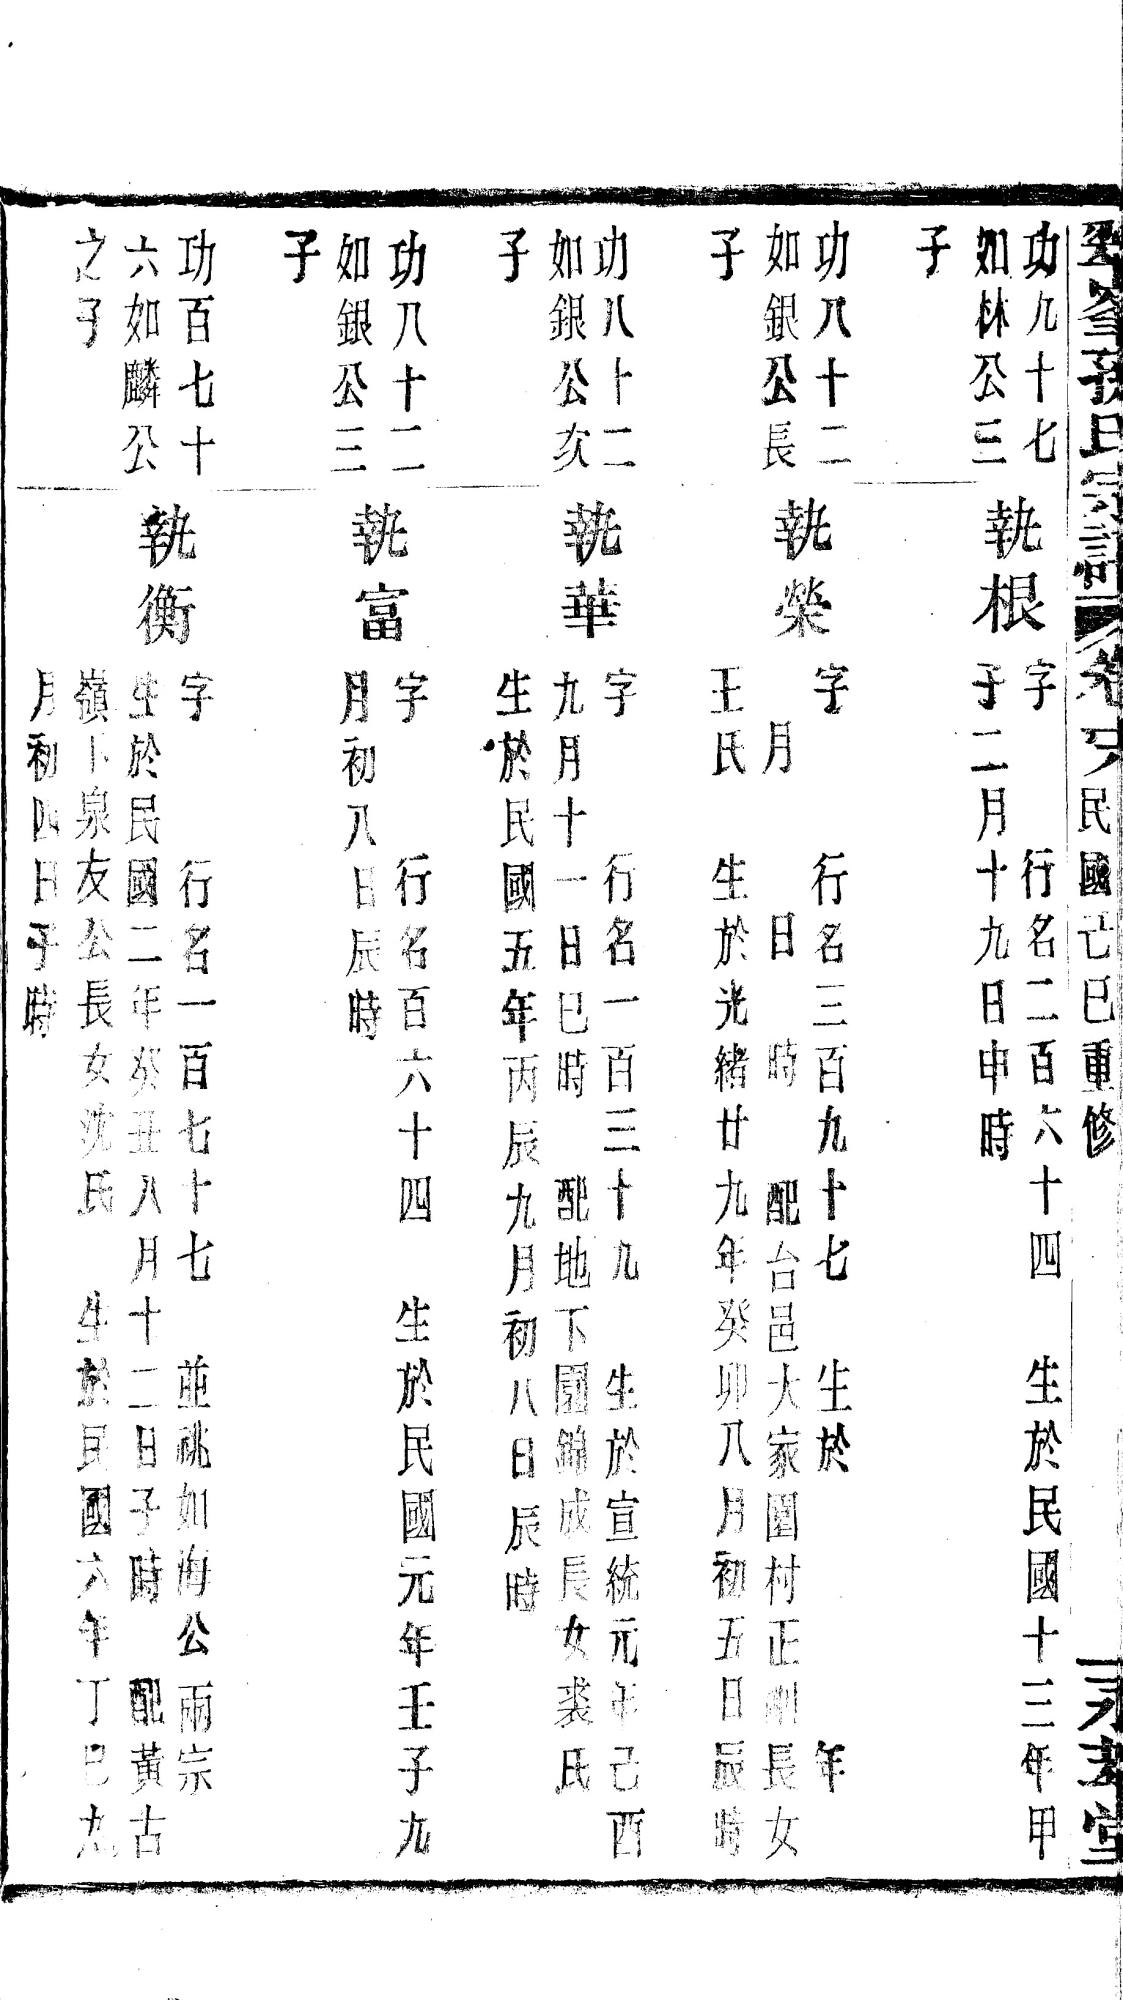 峯孫氏宗譜 卷 民國己巳重修 堂
功九十七
如林公三
子
執根
字 行名二百六十四 生於民國十三年甲
子二月十九日申時
功八十二
如銀公長
子
執榮
字 行名三百九十七 生於 年
月 日 時 配台邑大家園村正剛長女
王氏 生於光緒廿九年癸卯八月初五日辰時
功八十二
如銀公次
子
執華
字 行名一百三十九 生於宣統元年己酉
九月十一日巳時 配地下園錦成長女裘氏
生於民國五年丙辰九月初八日辰時
功八十二
如銀公三
子
執富
字 行名百六十四 生於民國元年壬子九
月初八日辰時
功百七十
六如麟公
之子
執衡
字 行名一百七十七 並祧如海公兩宗
生於民國二年癸丑八月十二日子時 配黃古
嶺下泉友公長女沈氏 生於民國六年丁巳九
月初四日子時